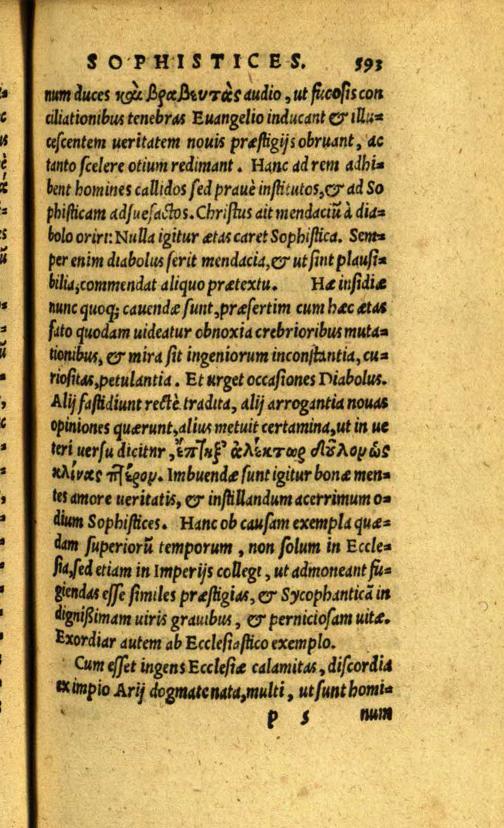 SOPHISTICES. 593
num duces καὶ βραβευτὰς audio, ut fucosis con
ciliationibus tenebras Euangelio inducant & illu=
cescentem ueritatem nouis præstigijs obruant, ac
tanto scelere otium redimant. Hanc ad rem adhi=
bent homines callidos sed prauè institutos, & ad So
phisticam adsuefactos. Christus ait mendaciū à dia=
bolo oriri: Nulla igitur ætas caret Sophistica. Sem=
per enim diabolus serit mendacia, & ut sint plausi=
bilia, commendat aliquo prætextu. Hæ insidiæ
nunc quoq; cauendæ sunt, præsertim cum hæc ætas
fato quodam uideatur obnoxia crebrioribus muta=
tionibus, & mira sit ingeniorum inconstantia, cu=
riositas, petulantia. Et urget occasiones Diabolus.
Alij fastidiunt rectè tradita, alij arrogantia nouas
opiniones quærunt, alius metuit certamina, ut in ue
teri uersu dicitnr, ἀλέκτωρ δοῦλον ὡς
κλίνας πτερόν. Imbuendæ sunt igitur bonæ men=
tes amore ueritatis, & instillandum acerrimum o=
dium Sophistices. Hanc ob causam exempla quæ=
dam superiorū temporum, non solum in Eccle=
sia, sed etiam in Imperijs collegi, ut admoneant fu=
giendas esse similes præstigias, & Sycophanticā in
dignißimam uiris grauibus, & perniciosam uitæ.
Exordiar autem ab Ecclesiastico exemplo.
Cum esset ingens Ecclesiæ calamitas, discordia
ex impio Arij dogmate nata, multi, ut sunt homi=
P 5 num